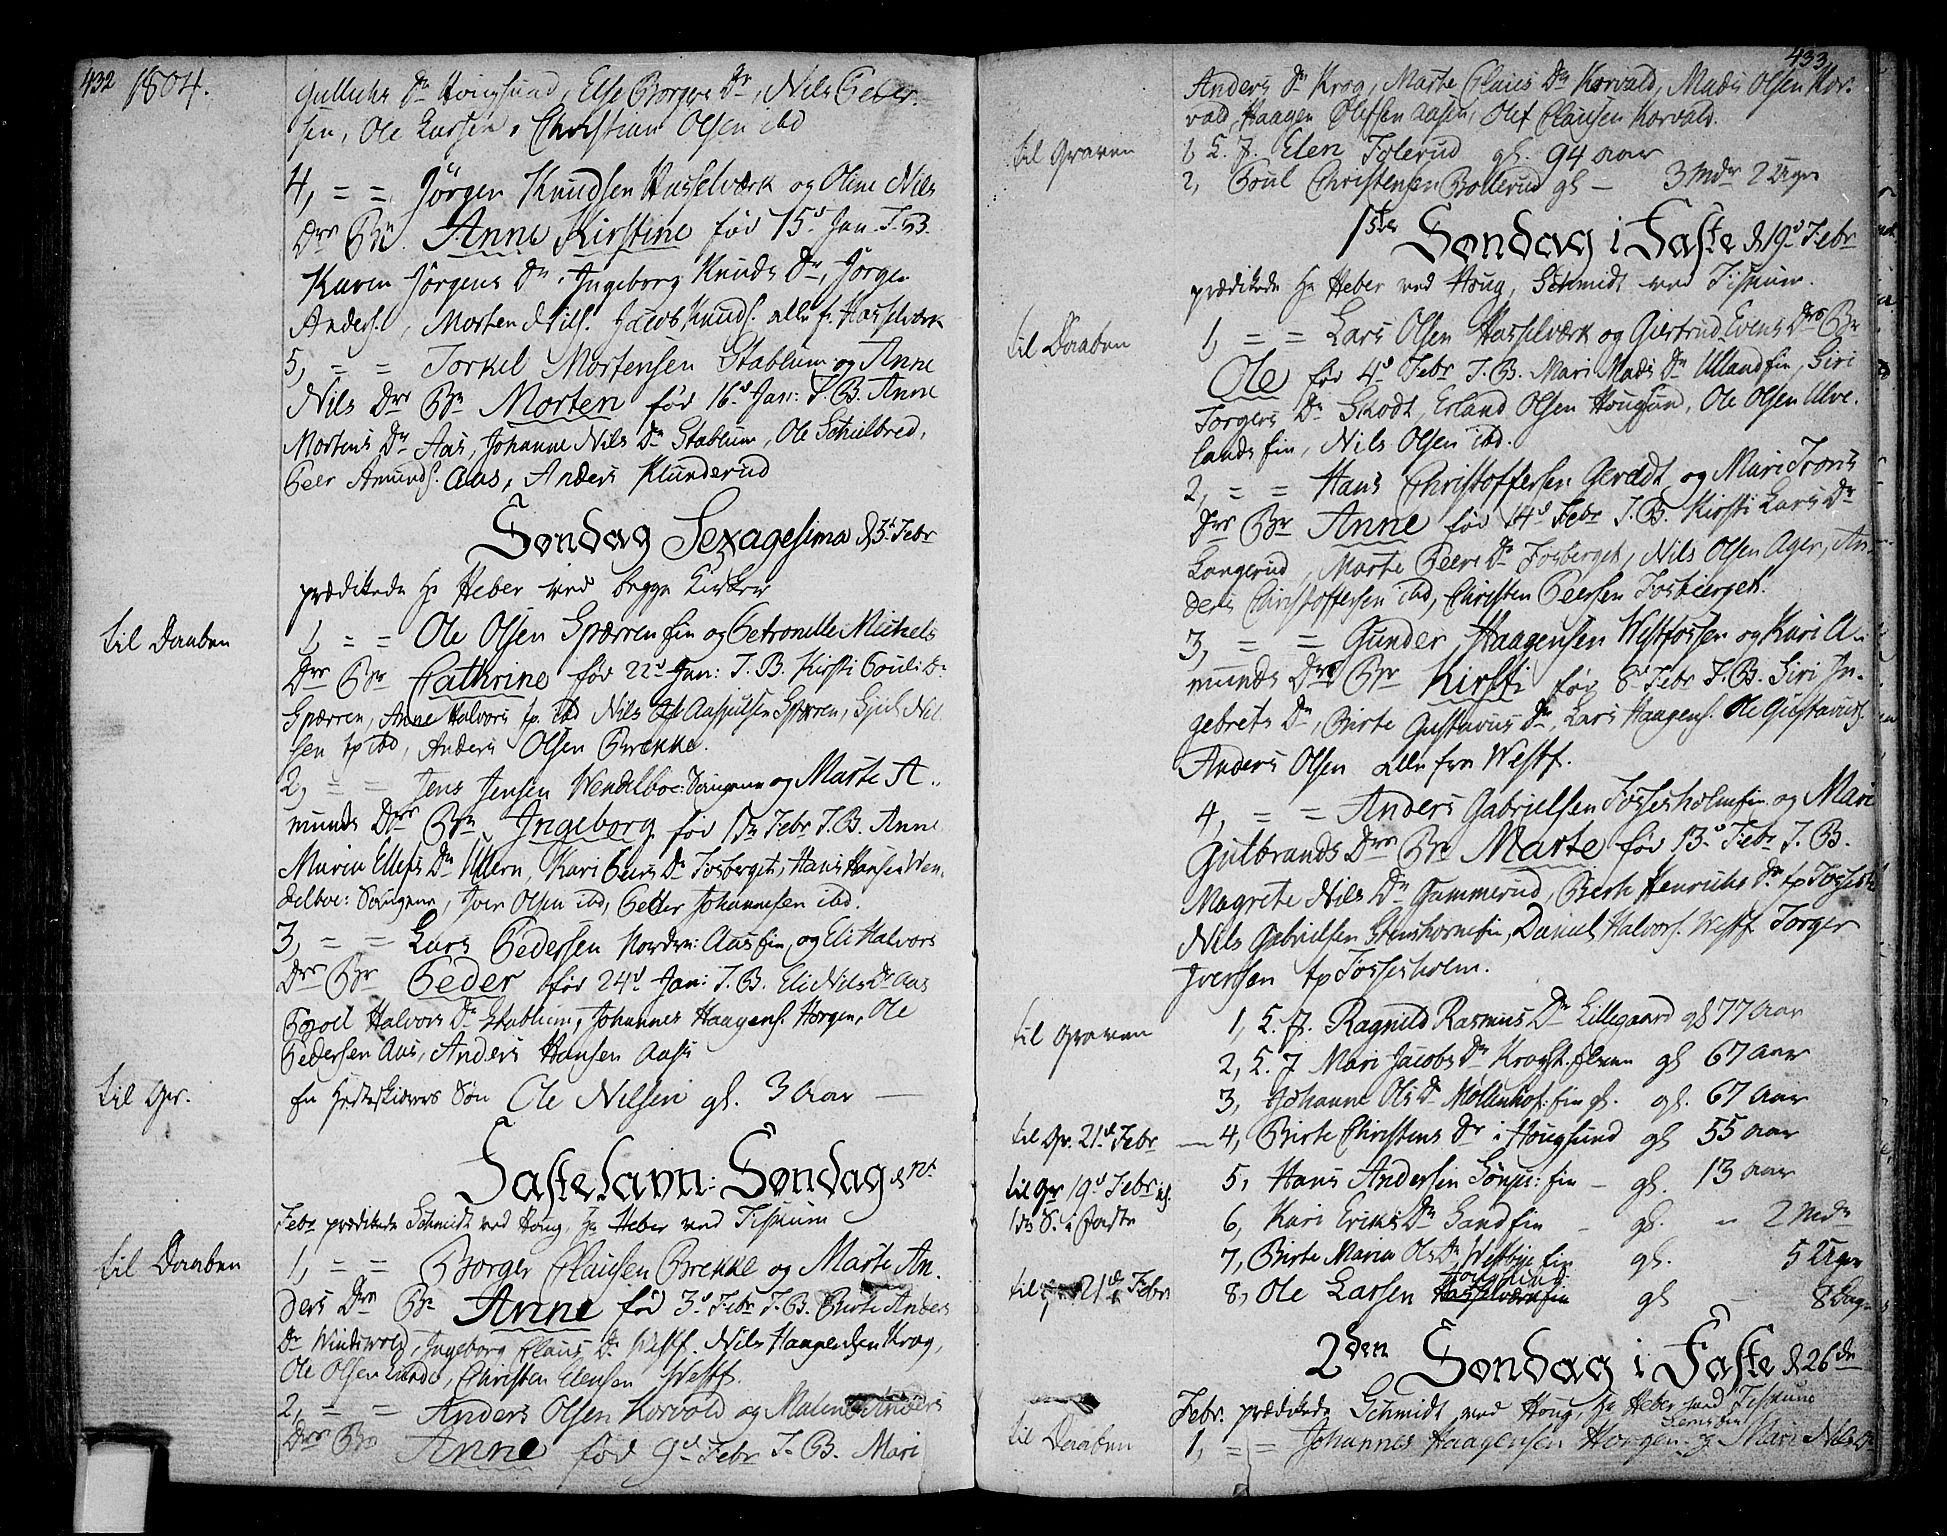 432 1804.
Gullichs Dr Hougsund, Else Borgers Dr, Nils Peder-
sen, Ole Larsen, Christian Olsen ibd
4, = = Jörgen Knudsen Hasselværk og Oline Nils
Drs Bn Anne Kirstine föd 15d Jan. F.B.
Karen Jörgens Dr, Ingeborg Knuds Dr, Jörgen
Anders., Morten Nils. Jacob Knuds. alle fr Hasselværk
5, = = Torkel Mortensen Stablum og Anne
Nils Drs Bn Morten föd 16d Jan: F.B. Anne
Mortens Dr Aas, Johanne Nils Dr Stablum, Ole Schulbred,
Peer Amunds. Aas, Anders Klunderud
Søndag Sexagesima d 5t Febr
prædikede Hr Heber ved begge Kirker
til Daaben
1, = = Ole Olsen Spærren fin og Petronelle Michels
Drs Bn Cathrine föd 22d Jan: F.B. Kirsti Pouls Dr
Spærren, Anne Halvors tp ibd Nils Aaspulsen Spærren, Nil
sen tp ibd, Anders Olsen Brække.
2, = = Jens Jensen Wendelboe: og Marte A-
munds Drs Bn Ingeborg föd 1st Febr F.B. Anne
Maria Ellefs Dr Ullern, Kari Peers Dr Fosberget, Hans Hansen Wen-
delboe: , Iver Olsen ibd, Petter Johannesen ibd.
3, = = Lars Pedersen Nordre: Aas fin og Eli Halvors
Drs Bn Peder föd 24d Jan: F.B. Eli Nils Dr Aas
Bodil Halvors Dr Stablum, Johannes Haagens. Horgen, Ole
Pedersen Aas, Anders Hansen Aas
til Gr.
en Sön Ole Nilsen gl. 3 Aar —
Fastelavn: Søndag d 12t
Febr prædikede Schmidt ved Houg, Hr Heber ved Fiskum
til Daaben
1, = = Borger Clausen Brekke og Marte An-
ders Drs Bn Anne föd 3d Febr F.B. Birte Anders
Dr Windvold, Ingeborg Claus Dr Westf. Nils Haagensen Krog,
Ole Olsen Lunde, Christen Elensen Westf.
2, = = Anders Olsen Korvald og Malene Anders
Drs Bn Anne föd 9d Febr F.B. Mari
433
Anders Dr Krog, Marte Claus Dr Korvald, Mads Olsen Kor-
vald, Haagen Olefsen Aasen, Olef Clausen Korvald.
til Graven
1, L.J. Elen Foslerud gl. 94 Aar
2, Poul Christensen Bollerud gl — 3 Mdr 2 Uger
1ste Søndag i Faste d 19d Febr
prædikede Hr Heber ved Houg, Schmidt ved Fiskum.
til Daaben
1, = = Lars Olsen Hasselværk og Giertrud Evens Drs Bn
Ole föd 4d Febr F.B. Mari Mads Dr Uland fin, Siri
Torgers Dr Skodt, Erland Olsen Hougsund, Ole Olsen Ulve-
lands fin, Nils Olsen ibd.
2, = = Hans Christoffersen Gerædt og Mari Trons
Drs Bn Anne föd 14d Febr F.B. Kirsti Lars Dr
Langerud, Marte Peers Dr Fosberget, Nils Olsen Ager, An-
ders Christoffersen ibd, Christen Peersen Fosbierget.
3, = = Gunder Haagensen Westfossen og Kari A-
munds Drs Bn Kirsti föd 8d Febr F.B. Siri In-
gebrets Dr, Birte Gustavus Dr, Lars Haagens. Ole Gustavus.
Anders Olsen alle fra Westf.
4, = = Anders Gabrielsen Fossesholm fin og Mari
Gulbrands Drs Bn Marte föd 13d Febr F.B.
Magrete Nils Dr Gummerud, Berth Henrichs Dr tp Fosesh
Nils Gabrielsen Stenshorne fin, Daniel Halvors. Westf. Torger
Iversen tp Fossesholm.
til Graven
1, L.J. Ragnild Rasmus Dr Lillegaard gl 77 Aar
2, L.J Mari Jacobs Dr gl 67 Aar
3, Johanne Ols Dr Möllenhof: fin gl. gl. 67 Aar
til Gr. 21d Febr — 4, Birte Christens Dr i Hougsund gl 55 Aar
til Gr 19d Febr 5, Hans Andersen fin — gl. 13 Aar
1ste S. i Faste 6, Kari Eriks Dr Sand fin — gl. — 2 Mdr
7, Birte Maria Ols Dr Westbye fin gl. 5 Uger
til 21d Febr 8, Ole Larsen Hougsund gl — 8 Dage
2den Søndag i Faste d 26de
Febr. prædikede Schmidt ved Houg, Hr Heber ved Fiskum
til Daaben
1, = = Johannes Haagensen Horgen og Mari Nils Dr